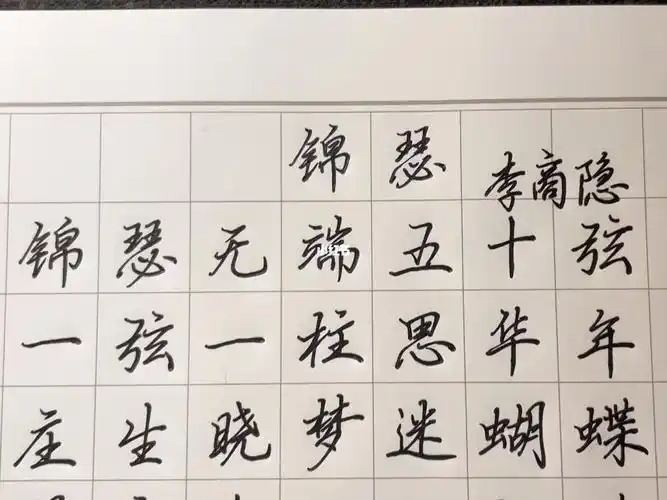 锦瑟
李商隐
锦瑟无端五十弦
一弦一柱思华年
庄生晓梦迷蝴蝶